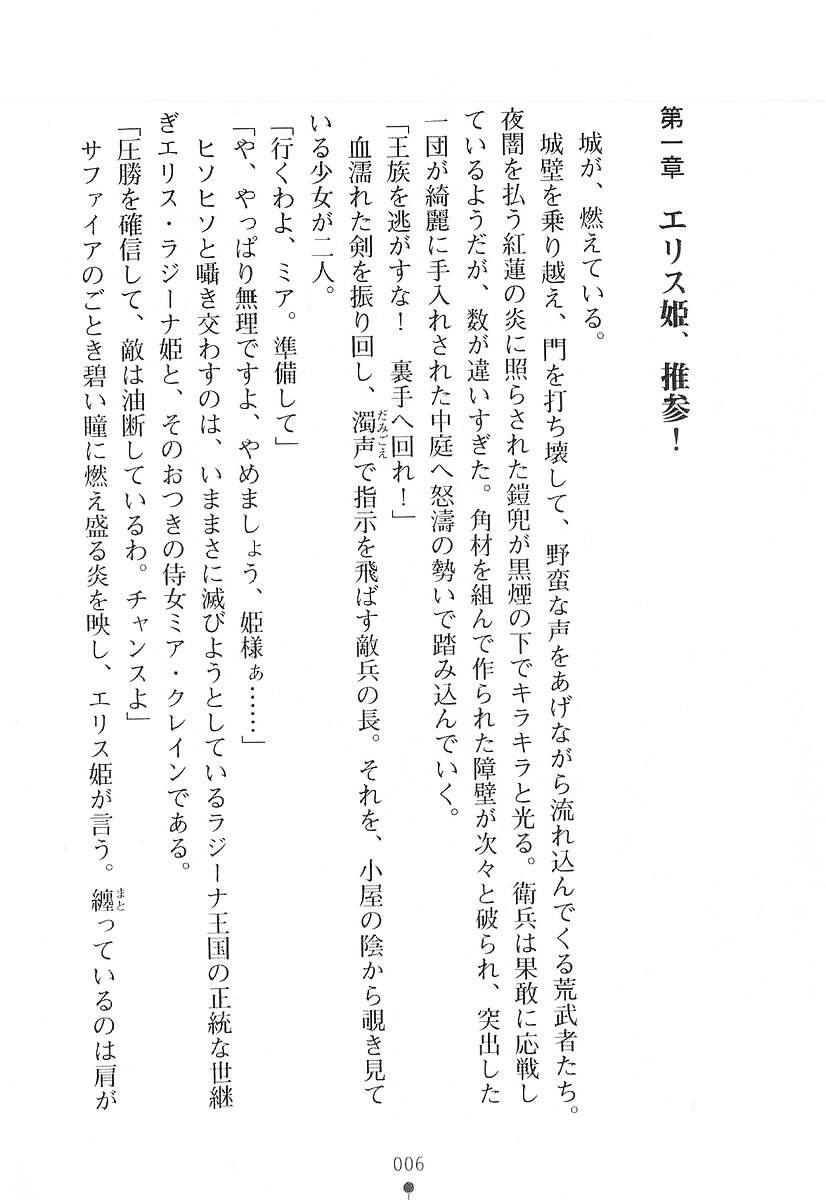 第一章　エリス姫、推参！
　城が、燃えている。
　城壁を乗り越え、門を打ち壊して、野蛮な声をあげながら流れ込んでくる荒武者たち。
夜闇を払う紅蓮の炎に照らされた鎧兜が黒煙の下でキラキラと光る。衛兵は果敢に応戦し
ているようだが、数が違いすぎた。角材を組んで作られた障壁が次々と破られ、突出した
一団が綺麗に手入れされた中庭へ怒濤の勢いで踏み込んでいく。
「王族を逃がすな！　裏手へ回れ！」
　血濡れた剣を振り回し、濁声だみごえで指示を飛ばす敵兵の長。それを、小屋の陰から覗き見て
いる少女が二人。
「行くわよ、ミア。準備して」
「や、やっぱり無理ですよ、やめましょう、姫様ぁ……」
　ヒソヒソと囁き交わすのは、いままさに滅びようとしているラジーナ王国の正統な世継
ぎエリス・ラジーナ姫と、そのおつきの侍女ミア・クレインである。
「圧勝を確信して、敵は油断しているわ。チャンスよ」
　サファイアのごとき碧い瞳に燃え盛る炎を映し、エリス姫が言う。纏まとっているのは肩が
006